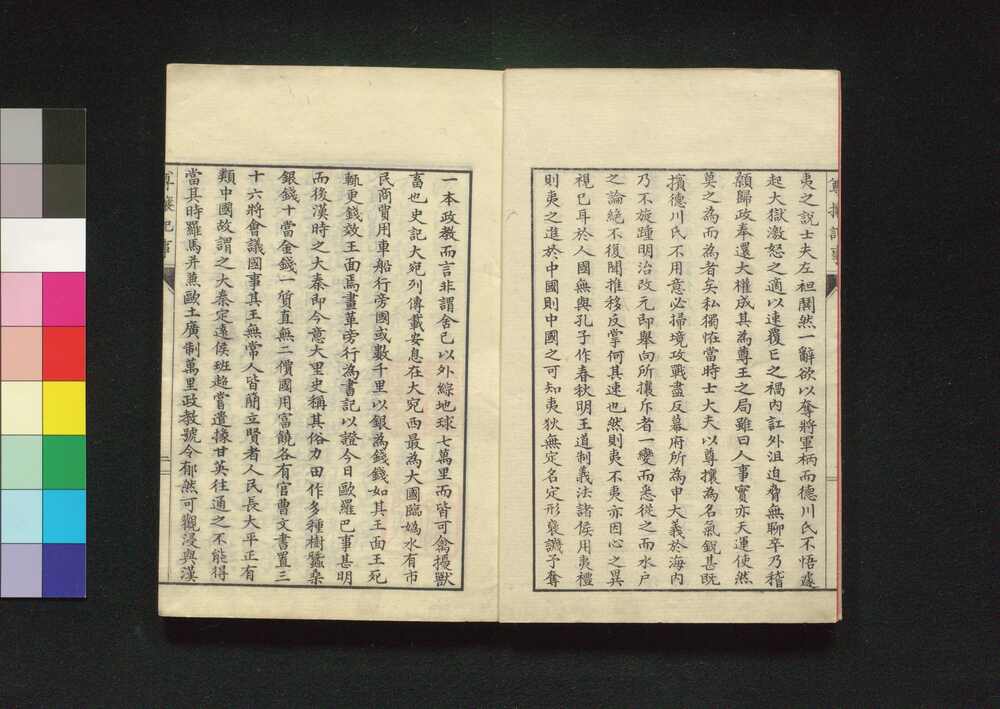 夷之說士夫左袒鬨然一辭欲以奪將軍柄而德川氏不悟遽
起大獄激怒之適以速覆亡之禍內訌外沮迫脅無聊卒乃稽
顙歸政奉還大權成其為尊王之局雖曰人事實亦天運使然
莫之為而為者矣私獨恠當時士大夫以尊攘為名氣銳甚既
擯德川氏不用意必掃境攻戰盡反幕府所為申大義於海內
乃不旋踵明治改元即舉向所攘斥者一變而悉從之而水戶
之論絕不復聞推移反掌何其速也然則夷不夷亦因心之異
視已耳於人國無與孔子作春秋明王道制義法諸侯用夷禮
則夷之進於中國則中國之可知夷狄無定名定形襃譏予奪
一本政教而言非謂舍己以外綜地球七萬里而皆可禽擾獸
畜也史記大宛列傳載安息在大宛西最為大國臨媯水有市
民商賈用車船行旁國或數千里以銀為錢錢如其王面王死
輒更錢效王面焉畫革旁行為書記以證今日歐羅巴事甚明
而後漢時之大秦即今意大里史稱其俗力田作多種樹蠶桑
銀錢十當金錢一質直無二價國用富饒各有官曹文書置三
十六將會議國事其王無常人皆簡立賢者人民長大平正有
類中國故謂之大秦定遠侯班超嘗遣掾甘英往通之不能得
當其時羅馬并兼歐土廣制萬里政教號令郁然可觀浸與漢
尊攘紀事
二